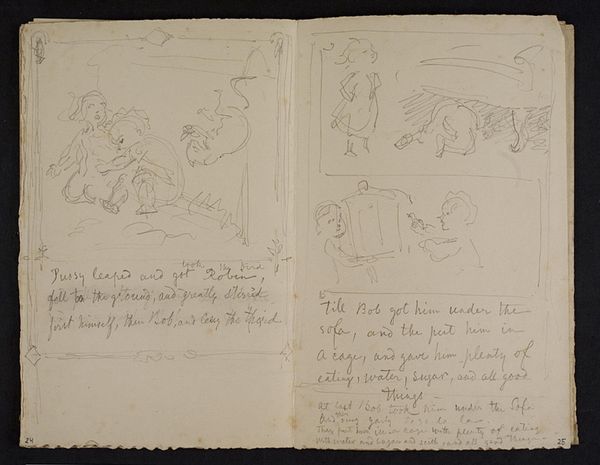 took the bird
Pussy leaped and got Robin,
fell to the ground, and greatly
first himself, then Bob, and the third
24
Till Bob got him under the
sofa, and the put him in
a cage, and gave him plenty of
eating, water, sugar, and all good
things —
At last Bob took him under the Sofa
Bird, sing gaily
They put him in a cage with plenty of eating
with water and sugar and and all good things —
25